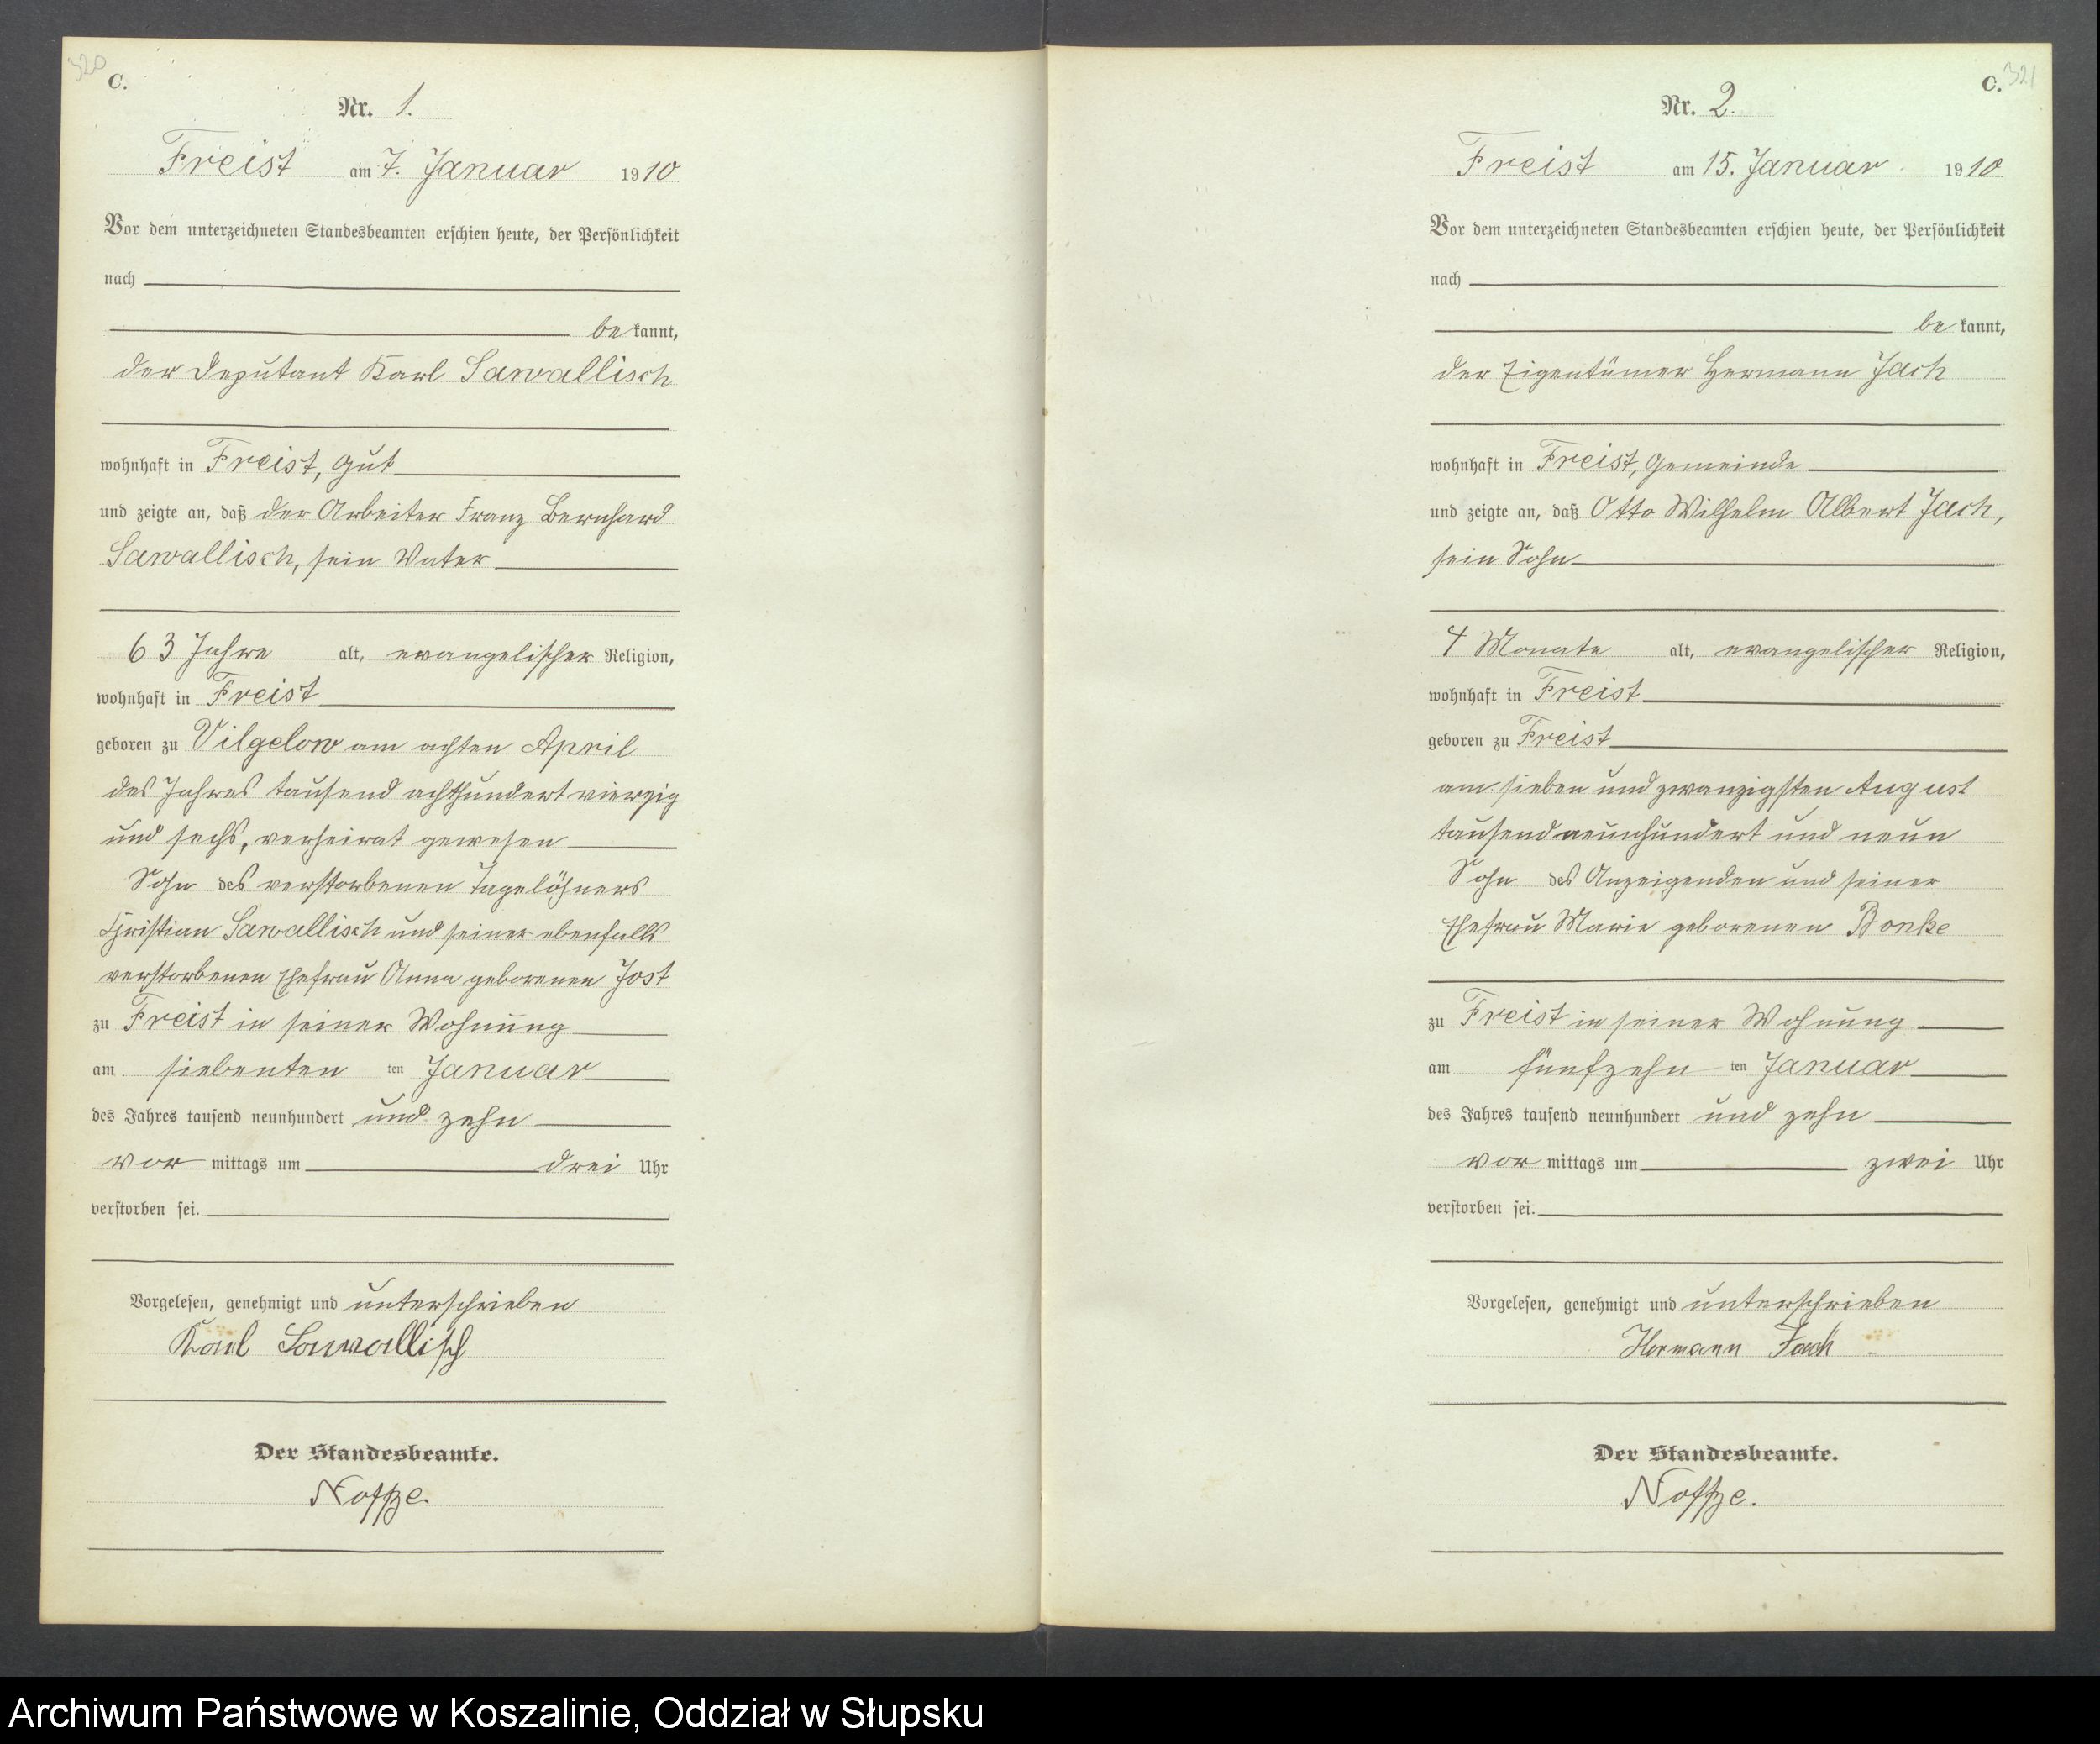 320
C.
Nr. 1.
Freist am 7. Januar 1910
Vor dem unterzeichneten Standesbeamten erschien heute, der Persönlichkeit
nach
be kannt,
der Deputant Karl Sawallisch
wohnhaft in Freist, Gut
und zeigte an, daß der Arbeiter Franz Bernhard
Sawallisch, sein Vater
63 Jahre alt, evangelischer Religion,
wohnhaft in Freist
geboren zu Vilgelow am achten April
des Jahres tausend achthundert vierzig
und sechs, verheirat gewesen
Sohn des verstorbenen Tagelöhners
Christian Sawallisch und seiner ebenfalls
verstorbenen Ehefrau Anna geborenen Jost
zu Freist in seiner Wohnung
am siebenten ten Januar
des Jahres tausend neunhundert und zehn
vor mittags um drei Uhr
verstorben sei.
Vorgelesen, genehmigt und unterschrieben
Karl Sawallisch
Der Standesbeamte.
Noffze.
C. 321
Nr. 2.
Freist am 15. Januar 1910
Vor dem unterzeichneten Standesbeamten erschien heute, der Persönlichkeit
nach
be kannt,
der Eigentümer Hermann Jach
wohnhaft in Freist, Gemeinde
und zeigte an, daß Otto Wilhelm Albert Jach,
sein Sohn
4 Monate alt, evangelischer Religion,
wohnhaft in Freist
geboren zu Freist
am sieben und zwanzigsten August
tausend neunhundert und neun
Sohn des Anzeigenden und seiner
Ehefrau Marie geborenen Bonke
zu Freist in seiner Wohnung
am fünfzehn ten Januar
des Jahres tausend neunhundert und zehn
vor mittags um zwei Uhr
verstorben sei.
Vorgelesen, genehmigt und unterschrieben
Hermann Jach
Der Standesbeamte.
Noffze.
Archiwum Państwowe w Koszalinie, Oddział w Słupsku